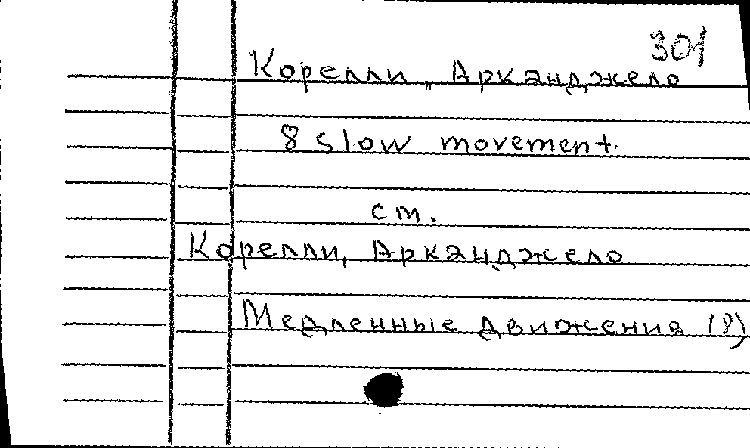 301
Корелли, Арканджело
8 slow movement.
см.
Корелли, Арканджело
Медленные движения (8)